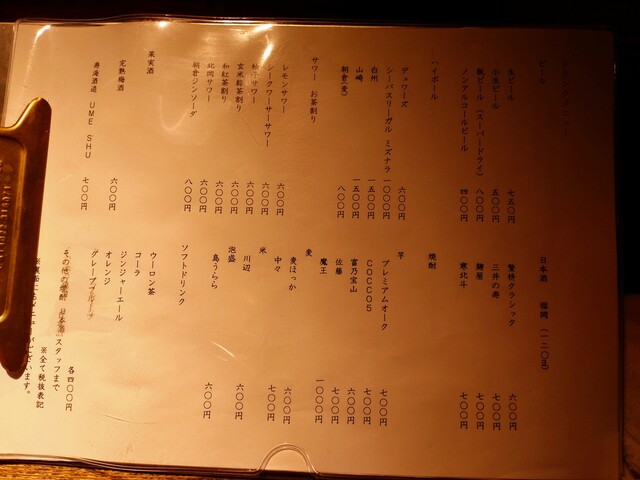 ドリンクメニュー
ビール
生ビール 七五〇円
小生ビール 五〇〇円
瓶ビール（スーパードライ） 八〇〇円
ノンアルコールビール 四〇〇円
ハイボール
デュワーズ 六〇〇円
シーバスリーガル ミズナラ 一〇〇〇円
白州 一五〇〇円
山崎 一五〇〇円
朝倉（麦） 八〇〇円
サワー お茶割り
レモンサワー 六〇〇円
シークワーサーサワー 六〇〇円
サワー 六〇〇円
玄米茶割り 六〇〇円
和紅茶割り 六〇〇円
北岡サワー 六〇〇円
朝倉ジンソーダ 八〇〇円
果実酒
完熟梅酒 六〇〇円
寿海酒造 UME SHU 七〇〇円
日本酒 福岡（一二〇㎖）
繁桝クラシック 六〇〇円
三井の寿 七〇〇円
七〇〇円
寒北斗 七〇〇円
焼酎
芋
プレミアムオーク 七〇〇円
COCCO5 七〇〇円
富乃宝山 六〇〇円
佐藤 七〇〇円
魔王 一〇〇〇円
麦
麦ほっか 六〇〇円
中々 七〇〇円
米
川辺 六〇〇円
泡盛
島うらら 六〇〇円
ソフトドリンク
ウーロン茶
コーラ
ジンジャーエール
オレンジ
グレープフルーツ
各四〇〇円
その他の焼酎 日本酒 スタッフまで
※全て税抜表記
ございます。